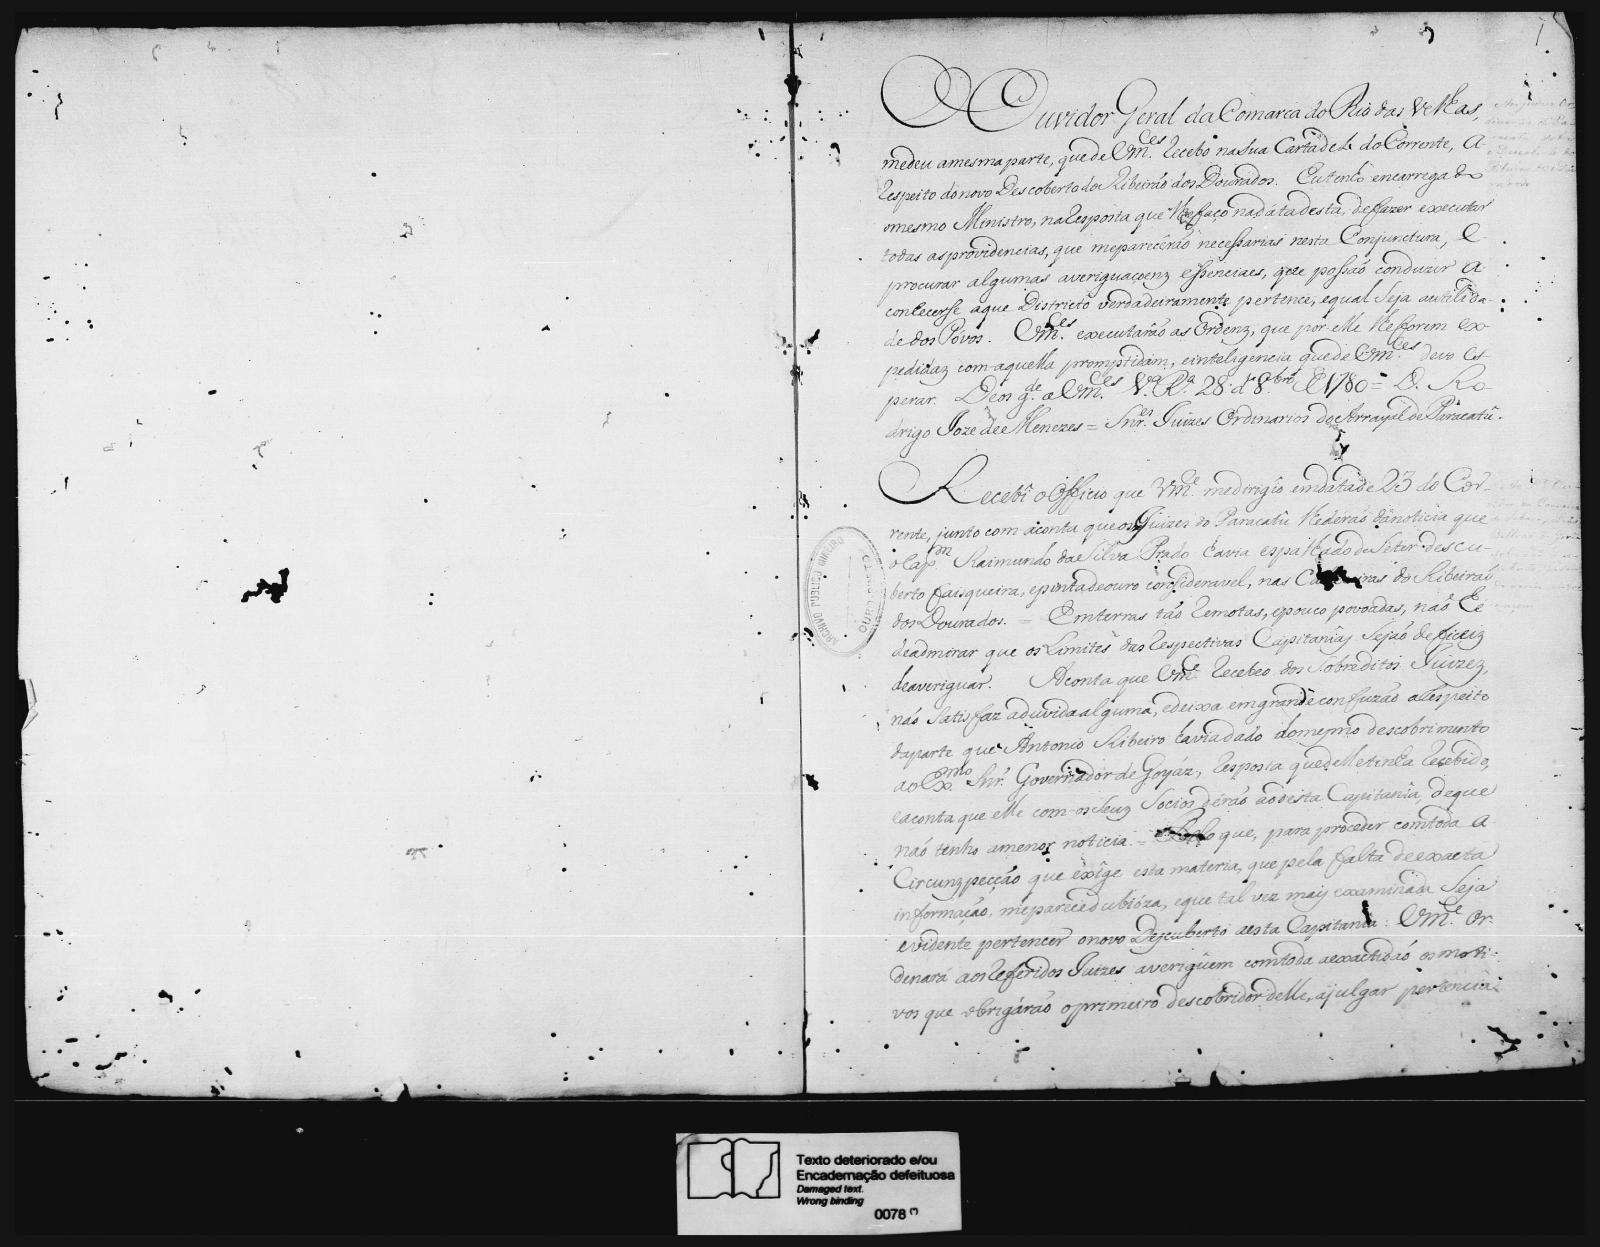 1
O Ouvidor Geral da Comarca do Rio das Velhas,
medeu amesma parte, que de Vm.ces recebo na sua Carta de 2 do Corrente, a
respeito do novo Descoberto do Ribeirão dos Dourados. Eu tenho encarregado
omesmo Ministro, na resposta que lhe faço na data desta, de fazer executar
todas as providencias, que me parecerão necessarias nesta Conjunctura, e
procurar algumas averiguaçoenz essenciaes, que possão conduzir a
conhecerse aque Districto verdadeiramente pertence, equal Seja autilida-
de dos Povos. Vm.ces executarão as Ordenz, que por elle lhe forem ex-
pedidaz com aquella promptidam, eintelligencia que de Vm.ces devo es-
perar. Deos g.de a Vm.ces V.a R.a 28 d' 8bro de 1780 = D. Ro-
drigo Joze de Menezes = Snr.es Juizes Ordinarios do Arrayal de Paracatû.
Recebî o Officio que Vm.ce medirigio em data de 23 do Cor-
rente, junto com aconta que os Juizes do Paracatû lhe derão da noticia que
o Cap.m Raimundo da Silva Prado havia espalhado de Seter descu-
berto faisqueira, epinta de ouro consideravel, nas Cabeceiras do Ribeirão
dos Dourados. = Em terras tão remotas, epouco povoadas, não he
deadmirar que os Limites das respectivas Capitanias Sejão deficeiz
deaveriguar. Aconta que Vm.ce recebeo dos Sobreditos Juizez,
não Satisfaz a duvida alguma, edeixa em grande confuzão a respeito
daparte que Antonio Ribeiro havia dado domesmo descobrimento
ao Ex.mo Snr. Governador de Goyáz, resposta que delle tinha recebido,
eaconta que elle com os Seuz Socios derão aodesta Capitania, deque
não tenho amenor noticia. = Pelo que, para proceder comtoda a
Circunzpecção que exige esta materia, que pela falta deexacta
informação, meparece dubióza, eque tal vez mais examinada Seja
evidente pertencer onovo Descuberto aesta Capitania: Vm.ce Or-
denará aos referidos Juizes averigûem comtoda aexactidão os moti-
vos que obrigárão oprimeiro descobridor delle, ajulgar pertencia
ARCHIVO PUBLICO MINEIRO
OURO PRETO
Texto deteriorado e/ou
Encadernação defeituosa
Damaged text.
Wrong binding
0078 (*)